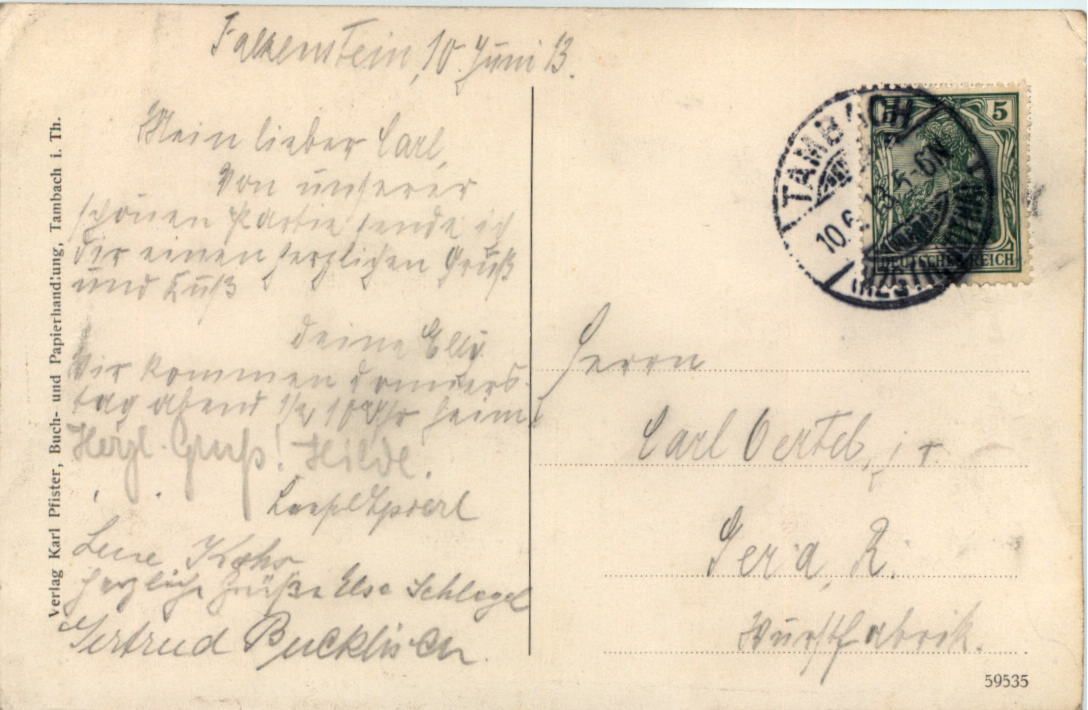 Falkenstein, 10. Juni 13.
Mein lieber Carl,
Von unserer
schönen Partie sende ich
dir einen herzlichen Gruß
und Kuß
deine Elly.
Wir kommen donners-
tag abend 1/2 10 Uhr heim!
Herzl. Gruß! Hilde.
Lene
herzliche Grüße Else Schlegel
Gertrud
Verlag Karl Pfister, Buch- und Papierhandlung, Tambach i. Th.
TAMBACH
10.6.13. 5-6N
5
DEUTSCHES REICH
Herrn
Carl Oertel, jr.
Gera, R.
Wurstfabrik.
59535